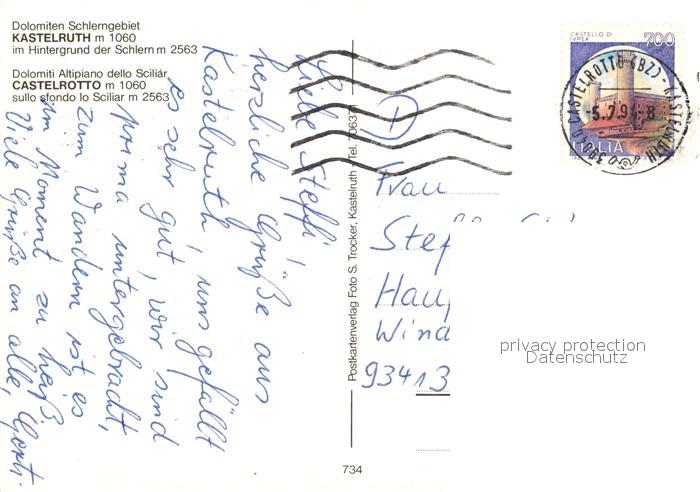 Dolomiten Schlerngebiet
KASTELRUTH m 1060
im Hintergrund der Schlern m 2563
Dolomiti Altipiano dello Sciliàr
CASTELROTTO m 1060
sullo sfondo lo Sciliar m 2563
Liebe Steffi!
herzliche Grüße aus
Kastelruth, uns gefällt
es sehr gut, wir sind
prima untergebracht,
zum Wandern ist es
im Moment zu heiß.
Viele Grüße an alle,
Postkartenverlag Foto S. Trocker, Kastelruth - Tel.
734
CASTELLO DI
IVREA
700
ITALIA
CASTELROTTO (BZ) - KASTELRUTH
Frau
Stef
Haup
Wind
93413
privacy protection
Datenschutz